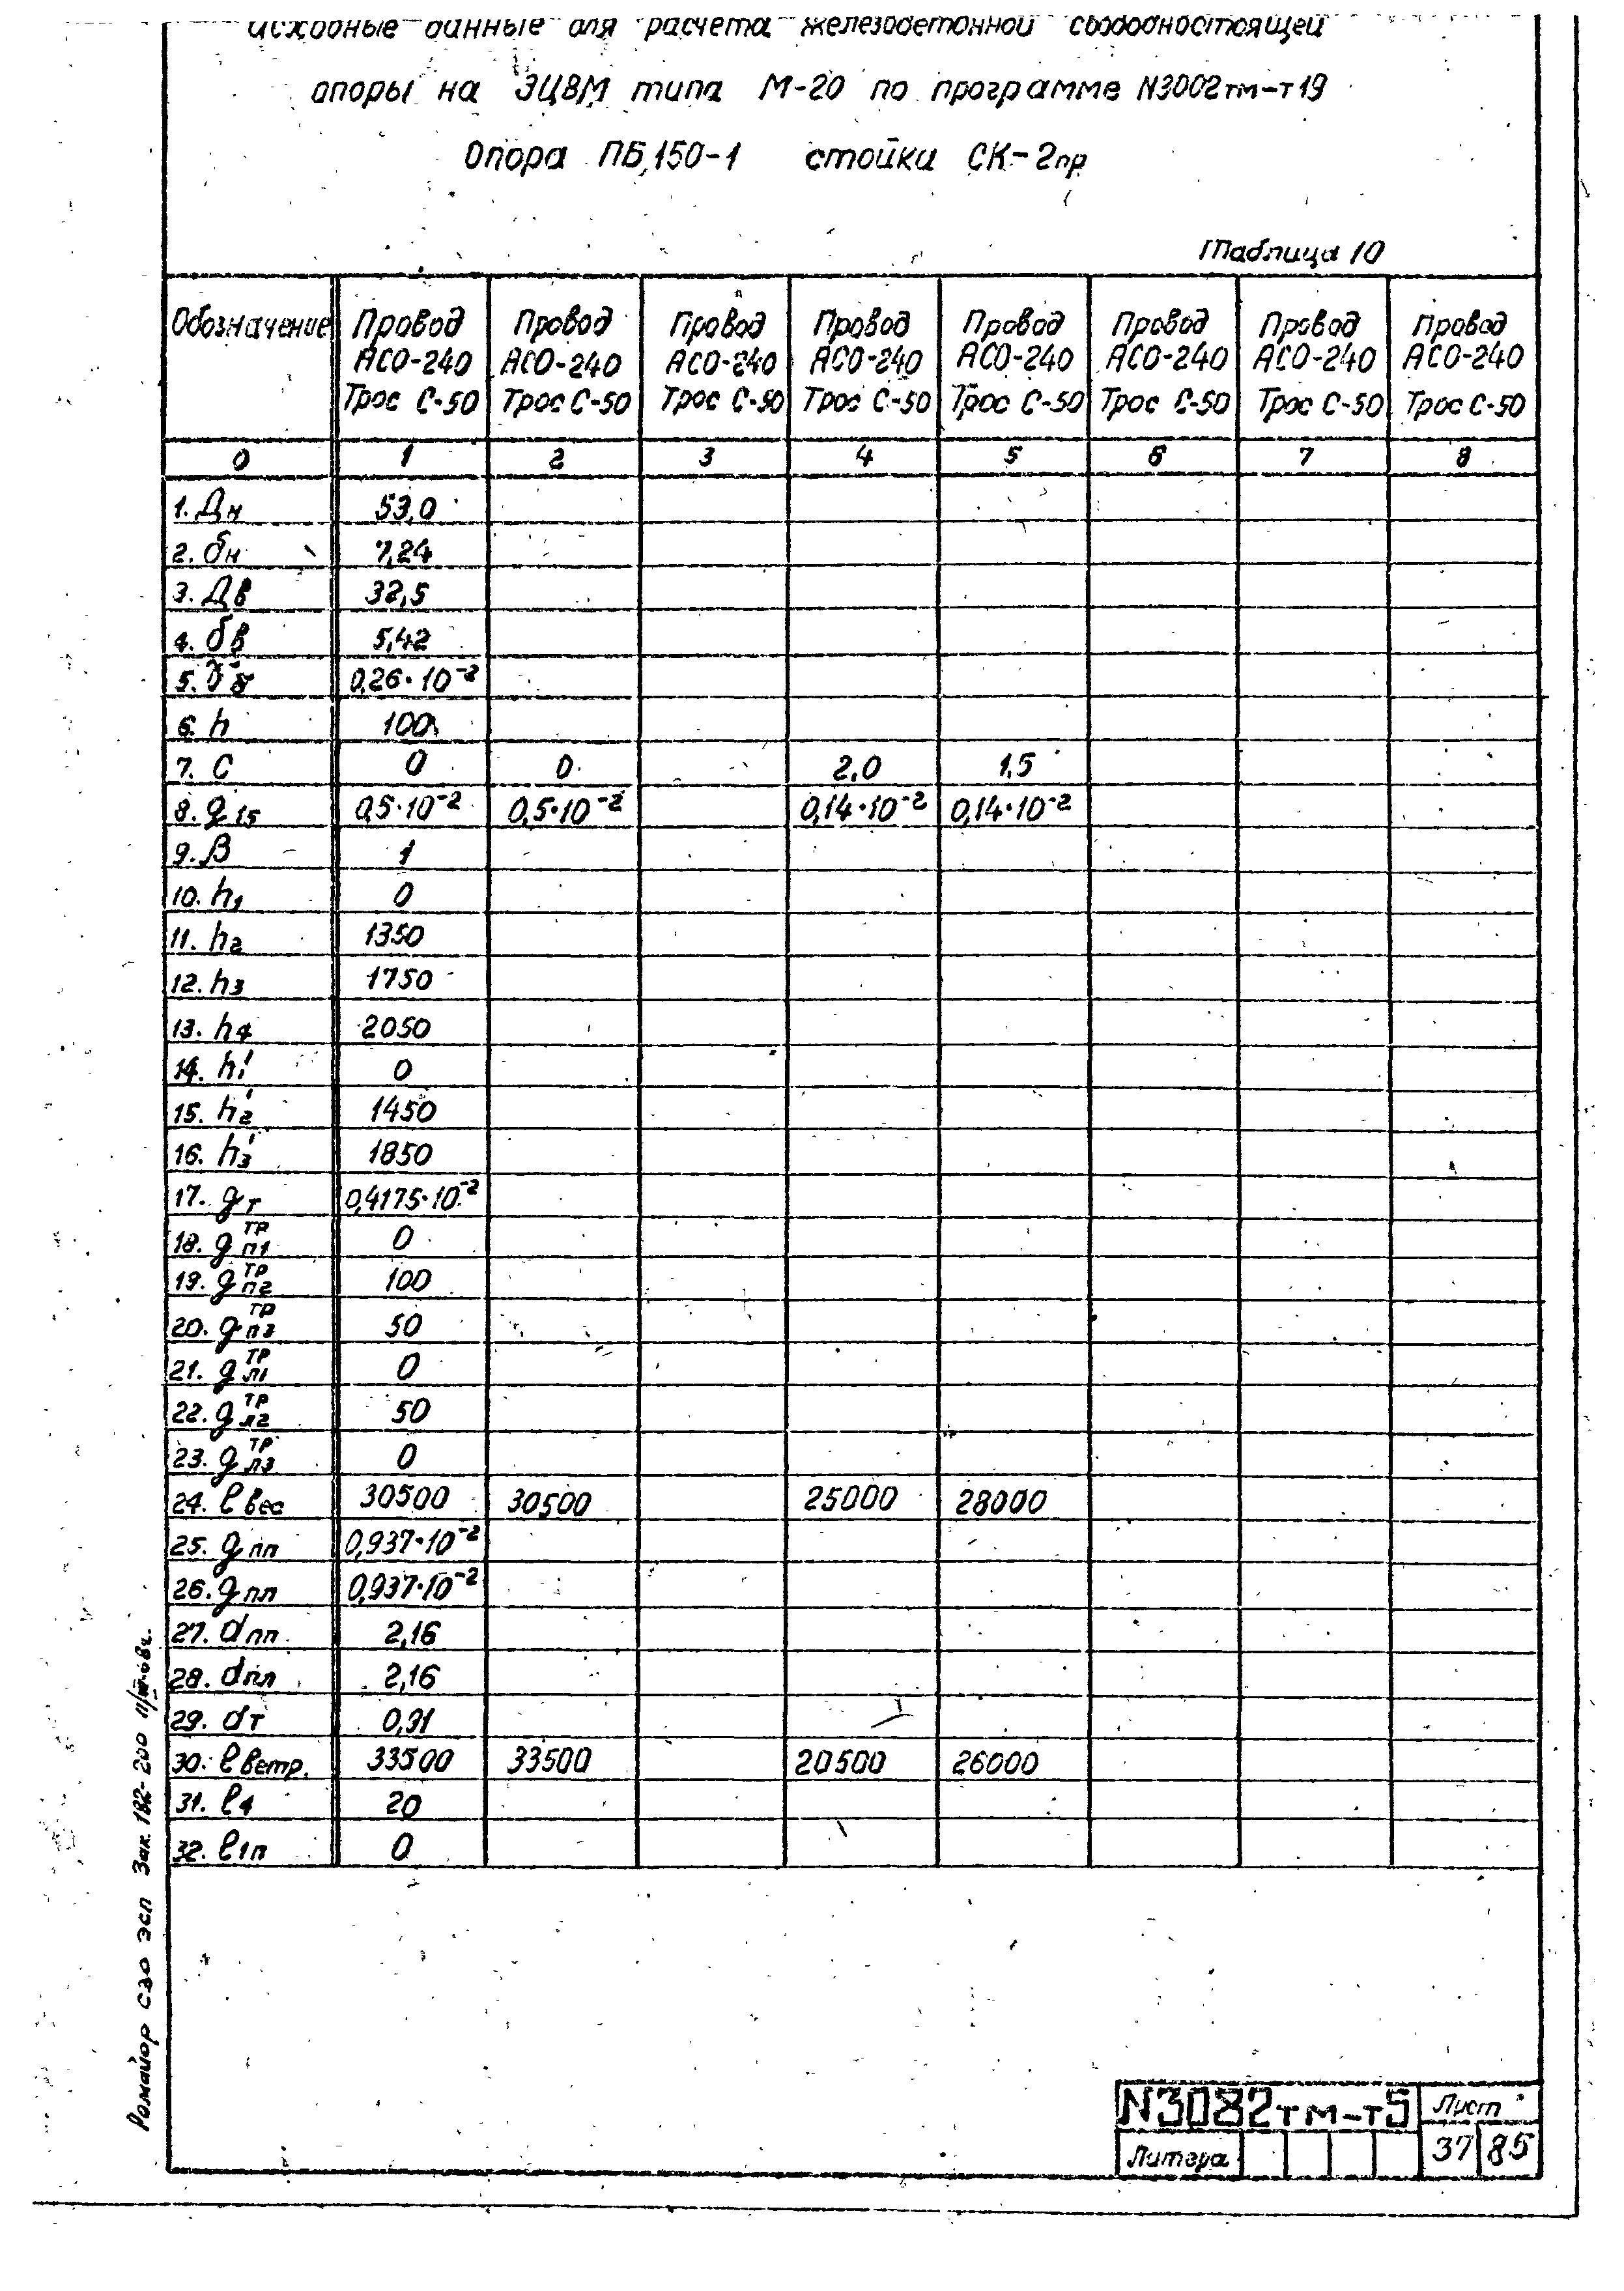 Исходные данные для расчета железобетонной свободностоящей
опоры на ЭЦВМ типа М-20 по программе N3002тм-т19
Опора ПБ 150-1 стойка СК-2пр
Таблица 10
Обозначение Провод АСО-240 Трос С-50 Провод АСО-240 Трос С-50 Провод АСО-240 Трос С-50 Провод АСО-240 Трос С-50 Провод АСО-240 Трос С-50 Провод АСО-240 Трос С-50 Провод АСО-240 Трос С-50 Провод АСО-240 Трос С-50
0 1 2 3 4 5 6 7 8
1. Дн 53,0
2. бн 7,24
3. Дв 32,5
4. бв 5,42
5. 0,26·10⁻²
6. h 100
7. С 0 0 2,0 1,5
8. g15 0,5·10⁻² 0,5·10⁻² 0,14·10⁻² 0,14·10⁻²
9. β 1
10. h1 0
11. h2 1350
12. h3 1750
13. h4 2050
14. h1' 0
15. h2' 1450
16. h3' 1850
17. gт 0,4175·10⁻²
18. g тр п1 0
19. g тр п2 100
20. g тр п3 50
21. g тр л1 0
22. g тр л2 50
23. g тр л3 0
24. ℓвес 30500 30500 25000 28000
25. gпп 0,937·10⁻²
26. gпл 0,937·10⁻²
27. dпп 2,16
28. dпл 2,16
29. dт 0,91
30. ℓветр. 33500 33500 20500 26000
31. ℓ4 20
32. ℓ1п 0
Ромайор СЗО ЭСП Зак. 182-200
N3082тм-т5 Лист
Литера 37 85